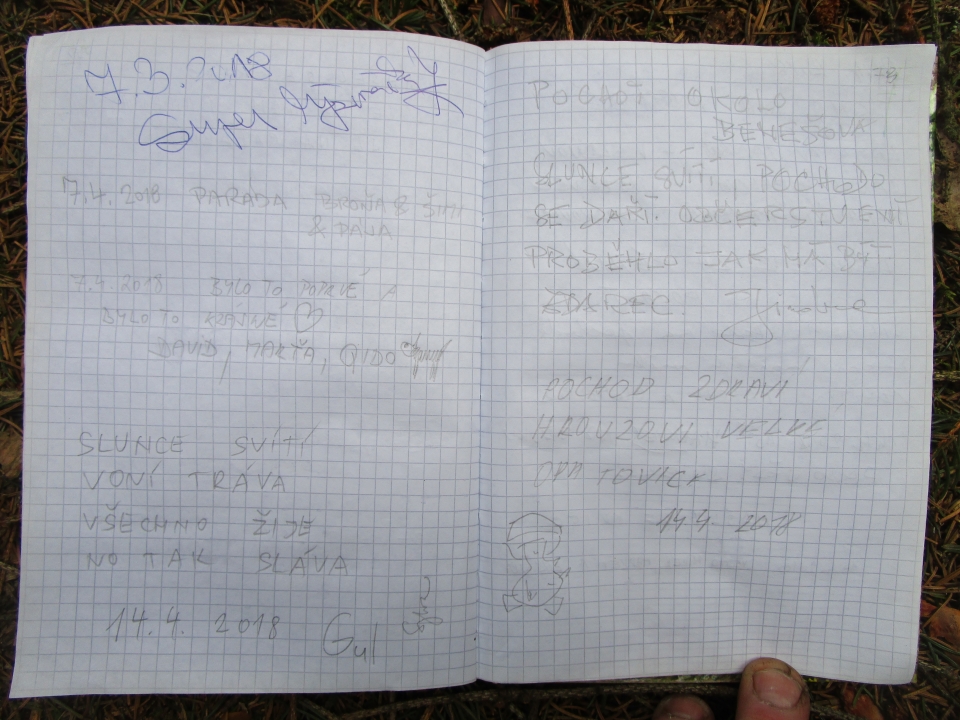 7.3.2018
Super
7.4.2018 PARÁDA BROŇA & ŠIMI
& DANA
7.4.2018 BYLO TO POPRVÉ A
BYLO TO KRÁSNÉ
DAVID, MARŤA, QIDO
SLUNCE SVÍTÍ
VONÍ TRÁVA
VŠECHNO ŽIJE
NO TAK SLÁVA
14.4. 2018 Gul
78
POCHOĎ OKOLO
BENEŠOVA
SLUNCE SVÍTÍ, POCHODO
SE DAŘÍ. OBČERSTVENÍ
PROBĚHLO JAK MÁ BÝT
ZDAREC.
POCHOD ZDRAVÍ
HROUZOVI VELKÉ
14.4. 2018